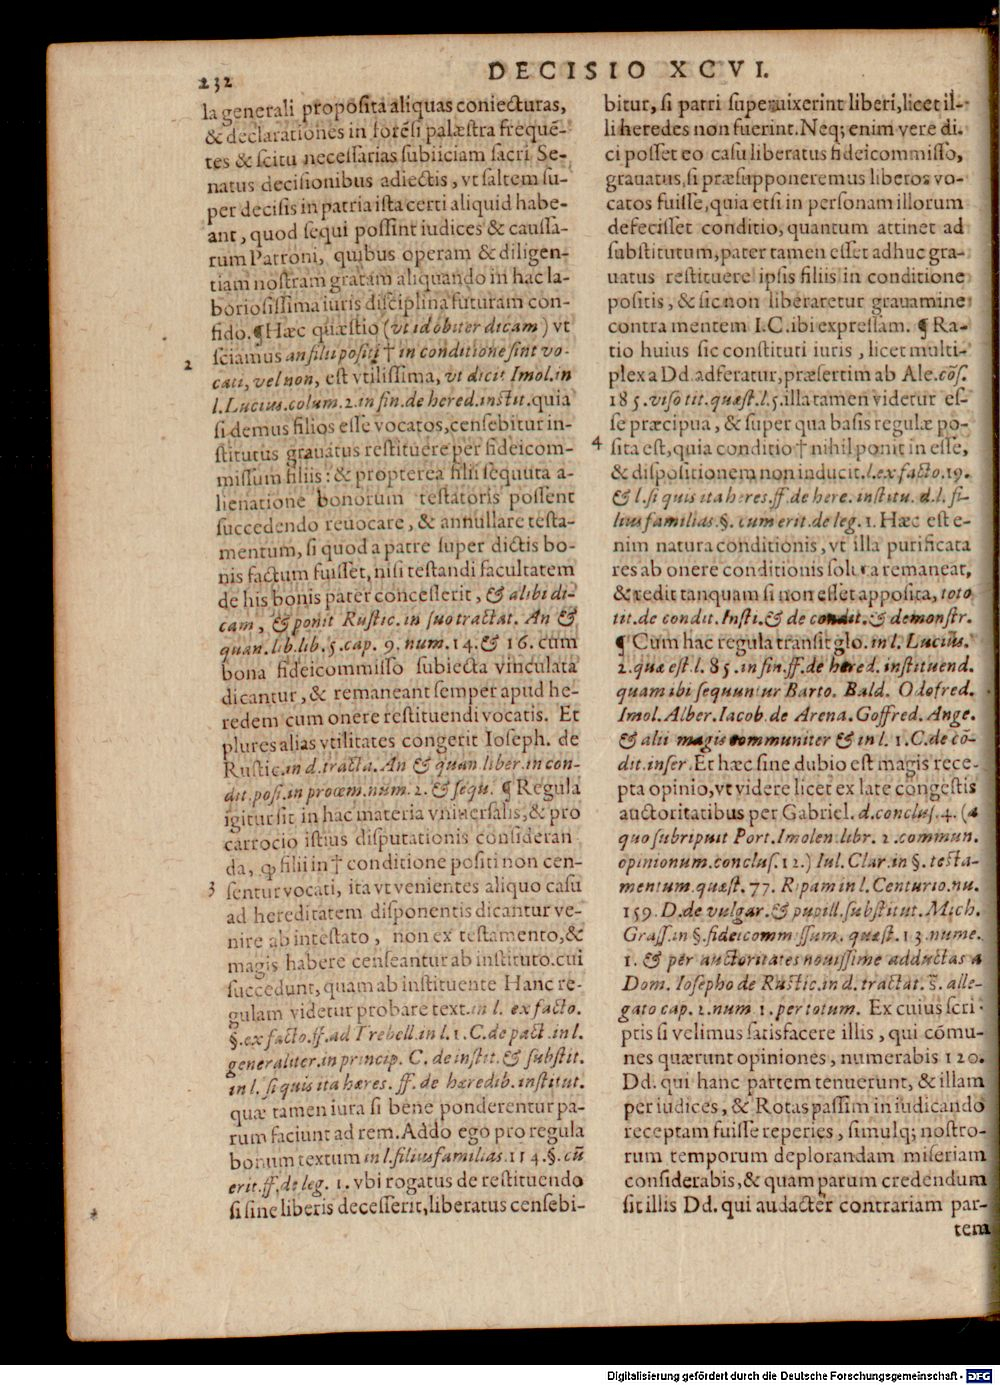 232
DECISIO XCVI.
la generali proposita aliquas coniecturas,
& declarationes in forēsi palæstra frequē-
tes & scitu necessarias subiiciam sacri Se-
natus decisionibus adiectis, vt saltem su-
per decisis in patria ista certi aliquid habe-
ant, quod sequi possint iudices & caussa-
rum Patroni, quibus operam & diligen-
tiam nostram gratam aliquando in hac la-
boriosissima iuris disciplina futuram con-
fido. ¶ Hæc quæstio (vt id obiter dicam) vt
2 sciamus an filii positi † in conditione sint vo-
cati, vel non, est vtilissima, vt dicit Imol. in
l. Lucius. colum. 2. in fin. de hered. instit. quia
si demus filios esse vocatos, censebitur in-
stitutus grauatus restituere per fideicom-
missum filiis: & propterea filii sequuta a-
lienatione bonorum testatoris possent
succedendo reuocare, & annullare testa-
mentum, si quod a patre super dictis bo-
nis factum fuisset, nisi testandi facultatem
de his bonis pater concesserit, & alibi di-
cam, & ponit Rustic. in suo tractat. An &
quan. lib. lib. 5. cap. 9. num. 14. & 16. cum
bona fideicommisso subiecta vinculata
dicantur, & remaneant semper apud he-
redem cum onere restituendi vocatis. Et
plures alias vtilitates congerit Ioseph. de
Rustic. in d. tracta. An & quan. liber. in con-
dit. posi. in proœm. num. 2. & sequ. ¶ Regula
igitur sit in hac materia vniuersalis, & pro
carrocio istius disputationis consideran
da, ꝙ filii in † conditione positi non cen-
3 sentur vocati, ita vt venientes aliquo casu
ad hereditatem disponentis dicantur ve-
nire ab intestato, non ex testamento, &
magis habere censeantur ab instituto. cui
succedunt, quam ab instituente Hanc re-
gulam videtur probare text. in l. ex facto.
§. ex facto. ff. ad Trebell. in l. 1. C. de pact. in l.
generaliter. in princip. C. de instit. & substit.
in l. si quis ita hæres. ff. de hæredib. institut.
quæ tamen iura si bene ponderentur pa-
rum faciunt ad rem. Addo ego pro regula
bonum textum in l. filiusfamilias. 114. §. cū
erit. ff. de leg. 1. vbi rogatus de restituendo
si sine liberis decesserit, liberatus censebi-
bitur, si patri superuixerint liberi, licet il-
li heredes non fuerint. Neq; enim vere di.
ci posset eo casu liberatus fideicommisso,
grauatus, si præsupponeremus liberos vo-
catos fuisse, quia etsi in personam illorum
defecisset conditio, quantum attinet ad
substitutum, pater tamen esset adhuc gra-
uatus restituere ipsis filiis in conditione
positis, & sic non liberaretur grauamine
contra mentem I.C. ibi expressam. ¶ Ra-
tio huius sic constituti iuris, licet multi-
plex a Dd. adferatur, præsertim ab Ale. cōs.
185. viso tit. quæst. l. 5. illa tamen videtur es-
se præcipua, & super qua basis regulæ po-
4 sita est, quia conditio † nihil ponit in esse,
& dispositionem non inducit. l. ex facto. 19.
& l. si quis ita heres. ff. de here. institu. d. l. fi-
liusfamilias. §. cum erit. de leg. 1. Hæc est e-
nim natura conditionis, vt illa purificata
res ab onere conditionis soluta remaneat,
& redit tanquam si non esset apposita, toto
tit. de condit. Insti. & de condit. & demonstr.
¶ Cum hac regula transit glo. in l. Lucius.
2. quæ est l. 85. in fin. ff. de hered. instituend.
quam ibi sequuntur Barto. Bald. Odofred.
Imol. Alber. Iacob. de Arena. Goffred. Ange.
& alii magis communiter & in l. 1. C. de cō-
dit. inser. Et hæc sine dubio est magis rece-
pta opinio, vt videre licet ex late congestis
auctoritatibus per Gabriel. d. conclus. 4. (a
quo subripuit Port. Imolen. libr. 2. commun.
opinionum. conclus. 12.) Iul. Clar. in §. testa-
mentum. quæst. 77. Ripam in l. Centurio. nu.
159. D. de vulgar. & pupill. substitut. Mich.
Grass. in §. fideicommissum. quæst. 13. nume.
1. & per auctoritates nouissime adductas a
Dom. Iosepho de Rustic. in d. tractat. §. alle-
gato cap. 2. num. 1. per totum. Ex cuius scri-
ptis si velimus satisfacere illis, qui cōmu-
nes quærunt opiniones, numerabis 120.
Dd. qui hanc partem tenuerunt, & illam
per iudices, & Rotas passim in iudicando
receptam fuisse reperies, simulq; nostro-
rum temporum deplorandam miseriam
considerabis, & quam parum credendum
sit illis Dd. qui audacter contrariam par-
tem
Digitalisierung gefördert durch die Deutsche Forschungsgemeinschaft - DFG